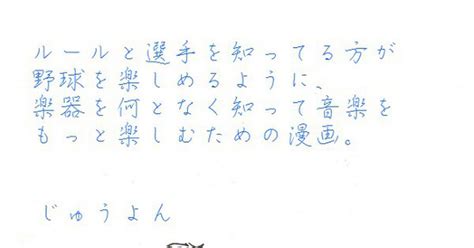 ルールと選手を知ってる方が
野球を楽しめるように、
楽器を何となく知って音楽を
もっと楽しむための漫画。
じゅうよん